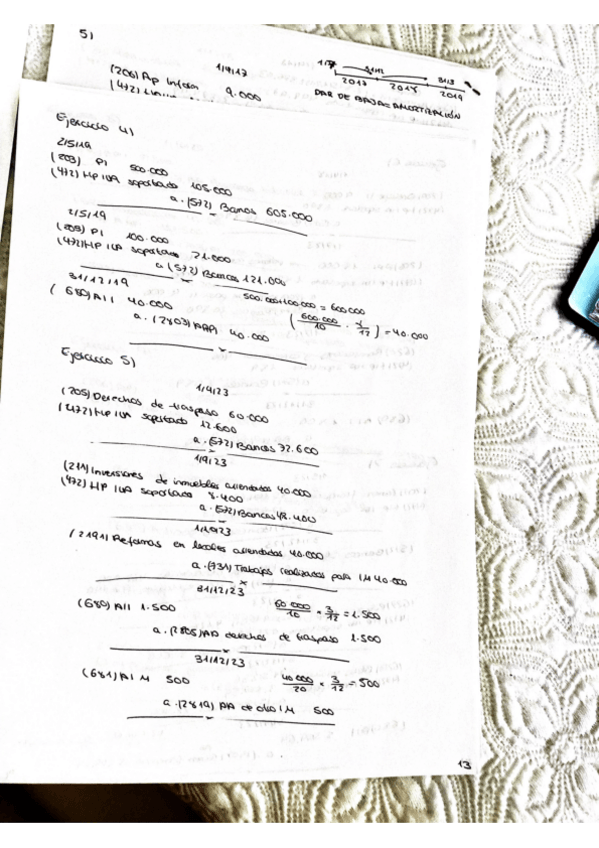 5)
1/9/17
31/12
31/3
2017 2018 2019
(206) Ap Inform 9.000
DAR DE BAJA = AMORTIZACIÓN
(472)
Ejercicio 4)
2/5/19
(203) PI 500.000
(472) HP IVA soportado 105.000
a. (572) Bancos 605.000
2/5/19
(203) PI 100.000
(472) HP IVA soportado 21.000
a (572) Bancos 121.000
31/12/19
500.000+100.000 = 600.000
(680) AII 40.000
(600.000/10 · /12) = 40.000
a. (2803) AAPI 40.000
Ejercicio 5)
1/9/23
(205) Derechos de traspaso 60.000
(472) HP IVA soportado 12.600
a. (572) Bancos 72.600
1/9/23
(219) Inversiones de inmuebles arrendados 40.000
(472) HP IVA soportado 8.400
a. (572) Bancos 48.400
1/10/23
(2191) Reformas en locales arrendados 40.000
a. (731) Trabajos realizados para IM 40.000
31/12/23
(680) AII 1.500
60.000/10 × 3/12 = 1.500
a. (2805) AA derechos de traspaso 1.500
31/12/23
(681) AIM 500
40.000/20 × 3/12 = 500
a. (2819) AA de otro IM 500
13